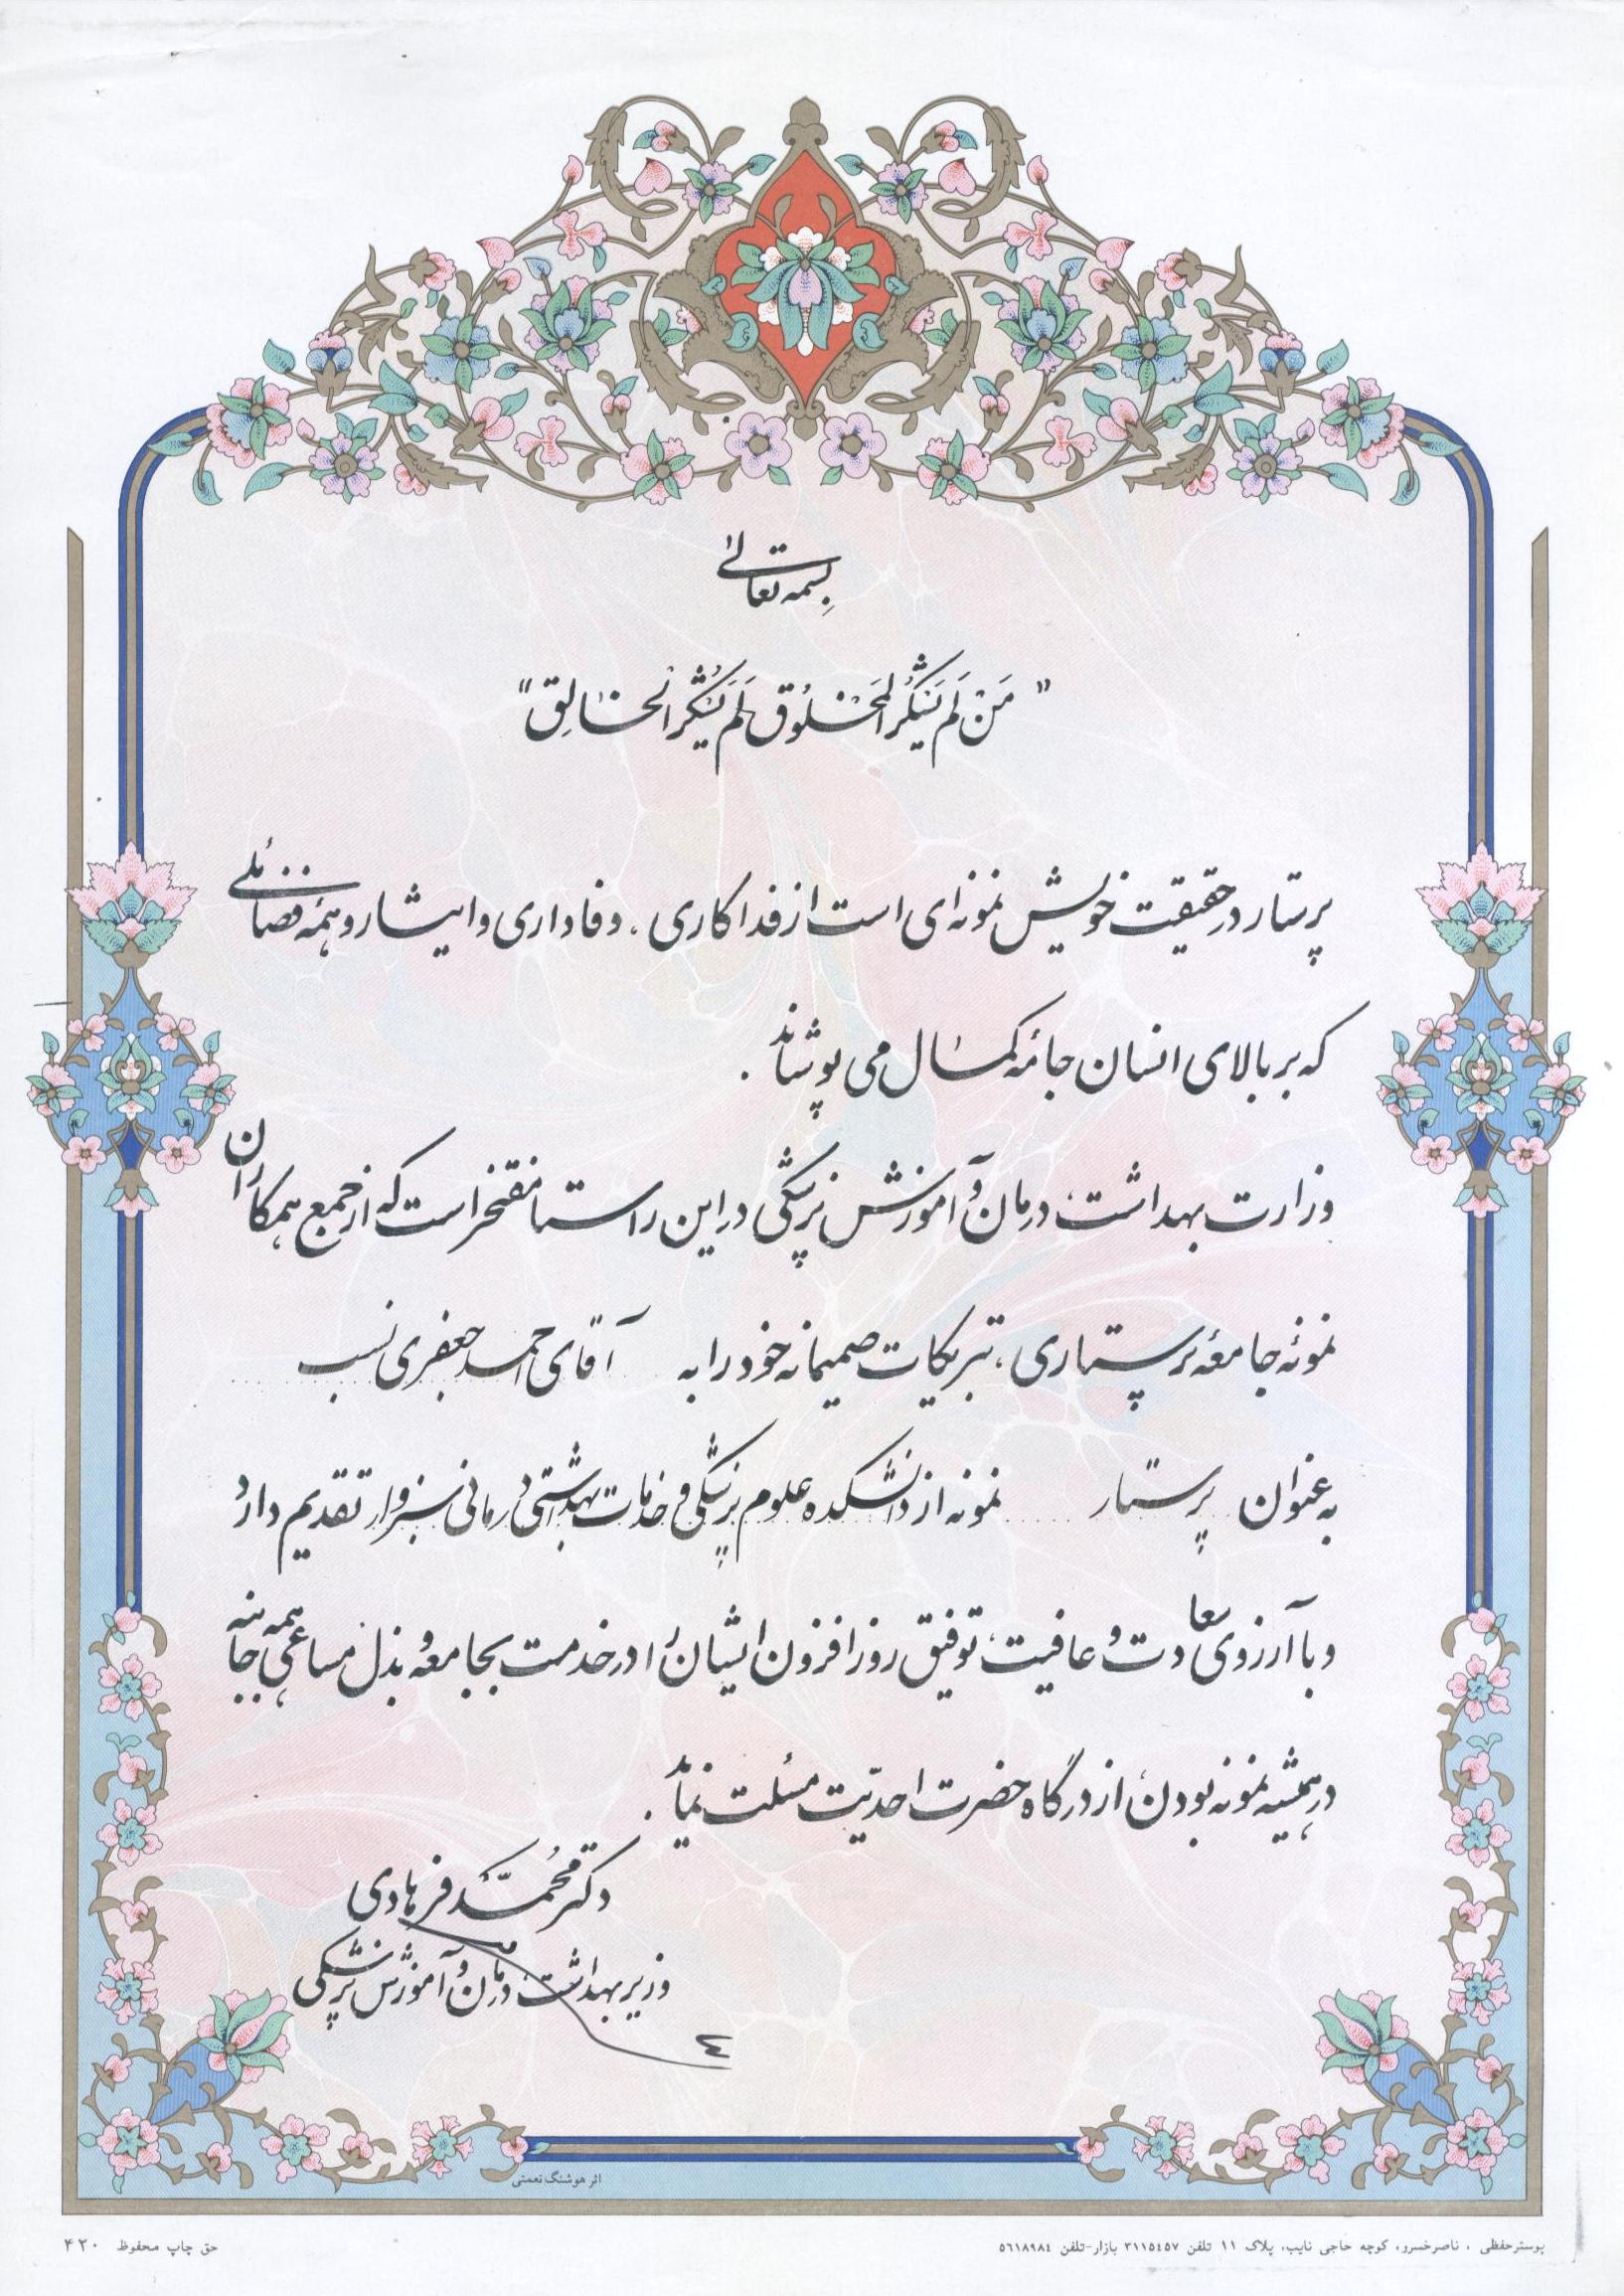 بسمه تعالی
"مَن لَم یَشکُرِ المَخلُوق لَم یَشکُرِ الخالِق"
پرستار در حقیقت خویش نمونه‌ای است از فداکاری، وفاداری و ایثار و همه فضائلی
که بر بالای انسان جامه کمال می پوشاند.
وزارت بهداشت، درمان و آموزش پزشکی در این راستا مفتخر است که از جمع همکاران
نمونه جامعه پرستاری، تبریکات صمیمانه خود را به آقای احمد جعفری نسب
به عنوان پرستار نمونه از دانشکده علوم پزشکی و خدمات بهداشتی درمانی سبزوار تقدیم دارد
و با آرزوی سعادت و عافیت، توفیق روز افزون ایشان را در خدمت بجامعه و بذل مساعی همه جانبه
در همیشه نمونه بودن، از درگاه حضرت احدیّت مسئلت نماید.
دکتر محمّد فرهادی
وزیر بهداشت، درمان و آموزش پزشکی
اثر هوشنگ نعمتی
پوستر حفظی، ناصرخسرو، کوچه حاجی نایب، پلاک ۱۱ تلفن ۳۱۱۵٤۵۷ بازار-تلفن ۵٦۱۸۹۸٤
حق چاپ محفوظ ۴۲۰